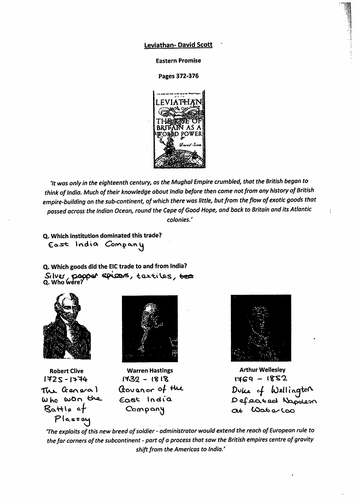 Leviathan- David Scott
Eastern Promise
Pages 372-376
LEVIATHAN
THE RISE OF
BRITAIN AS A
WORLD POWER
David Scott
'It was only in the eighteenth century, as the Mughal Empire crumbled, that the British began to
think of India. Much of their knowledge about India before then came not from any history of British
empire-building on the sub-continent, of which there was little, but from the flow of exotic goods that
passed across the Indian Ocean, round the Cape of Good Hope, and back to Britain and its Atlantic
colonies.'
Q. Which institution dominated this trade?
East India Company
Q. Which goods did the EIC trade to and from India?
Silver, pepper spices, textiles, tea
Q. Who were?
Robert Clive
1725-1774
The General
who won the
Battle of
Plassey
Warren Hastings
1732 - 1818
Govenor of the
East India
Company
Arthur Wellesley
1769 - 1852
Duke of Wellington
Defeated Napoleon
at Waterloo
'The exploits of this new breed of soldier - administrator would extend the reach of European rule to
the far corners of the subcontinent - part of a process that saw the British empires centre of gravity
shift from the Americas to India.'